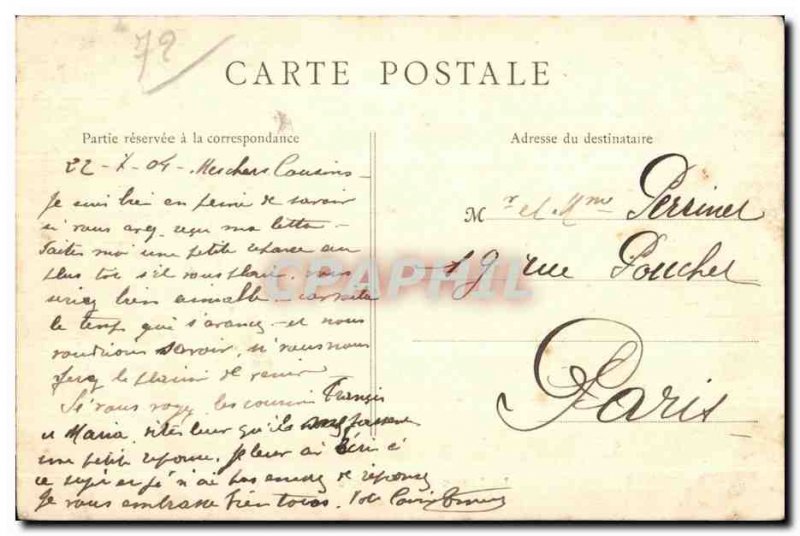 72
CARTE POSTALE
Partie réservée à la correspondance
Adresse du destinataire
22-X-04 - Mes chers Cousins
Je suis bien en peine de savoir
si vous avez reçu ma lettre -
faites moi une petite réponse au
plus tôt s'il vous plait. vous
seriez bien aimable. car voilà
le temps qui s'avance - et nous
voudrions savoir, si vous nous
ferez le plaisir de venir
Si vous voyez les cousins François
et Maria, dites leur qu'ils fassent
une petite réponse. Je leur ai écri à
ce sujet et je n'ai pas encore de réponse
Je vous embrasse bien tous.
Mr et Mme Perrinet
19 rue Pouchet
Paris
CPAPHIL